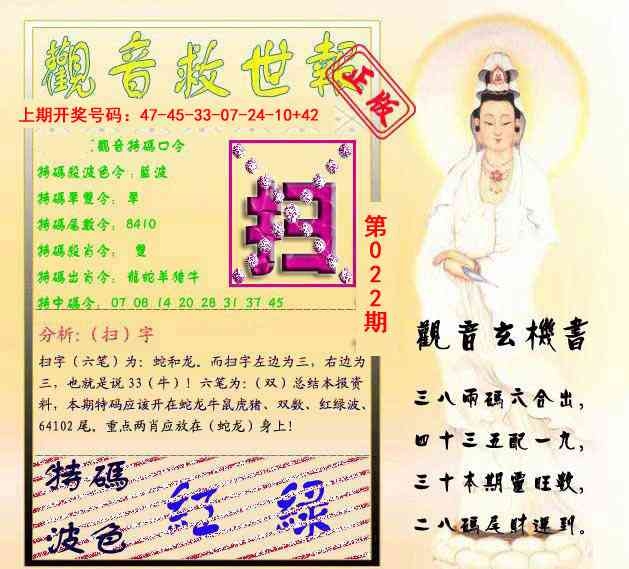 觀音救世報
正版
上期开奖号码：47-45-33-07-24-10+42
觀音特碼口令
特碼殺波色令：藍波
特碼單雙令： 單
特碼尾數令： 8410
特碼殺肖令： 雙
特碼出肖令： 龍蛇羊猪牛
特中碼令： 07 08 14 20 28 31 37 45
扫
第022期
分析:（扫）字
扫字（六笔）为：蛇和龙。而扫字左边为三，右边为
三，也就是说 33（牛）！六笔为:（双）总结本报资
料，本期特码应该开在蛇龙牛鼠虎猪、双数、红绿波、
64102 尾。重点两肖应放在（蛇龙）身上！
特碼
波色
紅 綠
觀音玄機書
三八兩碼六合出，
四十三五配一九，
三十本期靈旺数，
二八碼尾財運到。